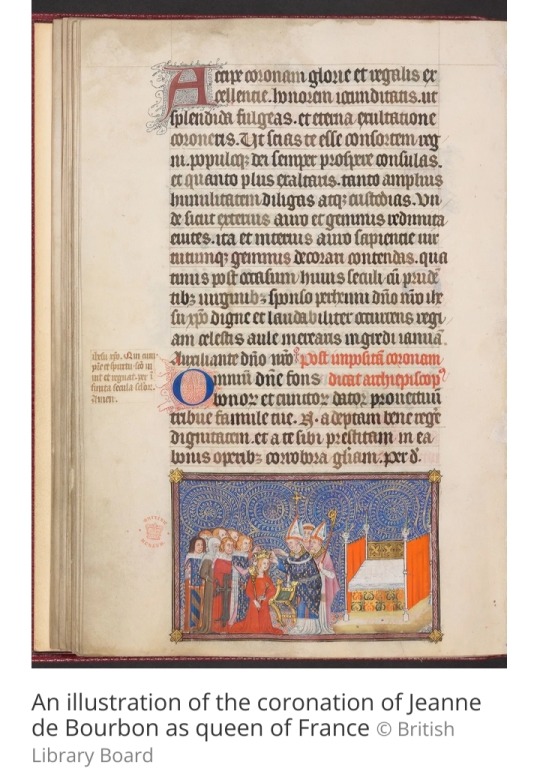 Accipe coronam glorie et regalis ex
cellentie. honorem iocunditatis. ut
splendida fulgeas. et eterna exultatione
coroneris. Ut scias te esse consortem reg
ni. populoq; dei semper prospere consulas.
et quanto plus exaltaris. tanto amplius
humilitatem diligas atq; custodias. Vn
de sicut exterius auro et gemmis redimita
enites. ita et interius auro sapientie uir
tutumq; gemmis decorari contendas. qua
tinus post occasum huius seculi cū prudē
tibz uirginibz sponso perhenni dño nrō ihe
su xpō digne et laudabiliter occurrens regi
am celestis aule merearis ingredi ianuā.
Auxiliante dño nrō post impositā coronam
ihesu xpō. Qui cum
pr̄e et spiritu scō ui
uit et regnat. per ī
finita secula
Amen.
Omniū dñe fons dicat archiepiscop9
bonorū et cunctorū dator profectuū
tribue famule tue .N. adeptam bene regē
dignitatem. et a te sibi prestitam in ea
bonis operibz corrobora gliam. per d.
An illustration of the coronation of Jeanne
de Bourbon as queen of France © British
Library Board